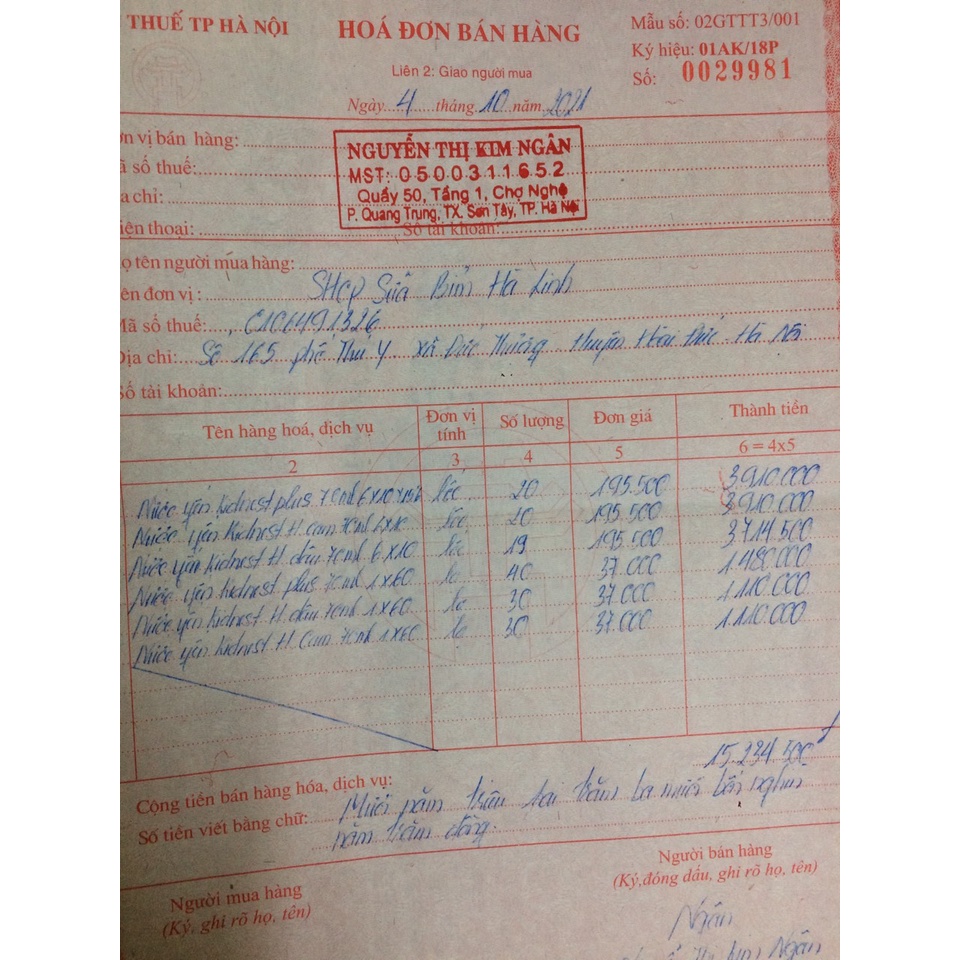 THUẾ TP HÀ NỘI
HOÁ ĐƠN BÁN HÀNG
Mẫu số: 02GTTT3/001
Liên 2: Giao người mua
Ký hiệu: 01AK/18P
Số: 0029981
Ngày 4 tháng 10 năm 2021
ơn vị bán hàng:
NGUYỄN THỊ KIM NGÂN
ã số thuế:
MST: 0500311652
ịa chỉ:
Quầy 50, Tầng 1, Chợ Nghệ
P. Quang Trung, TX. Sơn Tây, TP. Hà Nội
iện thoại: Số tài khoản:
ọ tên người mua hàng:
ên đơn vị: SHCP Sữa Bỉm Hà Linh
Mã số thuế: 0106491326
Địa chỉ: Số 165 phố Thú Y - xã Đức Thượng - Huyện Hoài Đức - Hà Nội
Số tài khoản:
Tên hàng hoá, dịch vụ Đơn vị tính Số lượng Đơn giá Thành tiền
2 3 4 5 6 = 4x5
Nước yến Kidnest plus 70ml 6x10 lốc 20 195.500 3.910.000
Nước yến Kidnest H. cam 70ml 6x10 lốc 20 195.500 3.910.000
Nước yến Kidnest H. dâu 70ml 6x10 lốc 19 195.500 3.714.500
Nước yến Kidnest plus 70ml 1x60 lọ 40 37.000 1.480.000
Nước yến Kidnest H. dâu 70ml 1x60 lọ 30 37.000 1.110.000
Nước yến Kidnest H. Cam 70ml 1x60 lọ 30 37.000 1.110.000
Cộng tiền bán hàng hóa, dịch vụ: 15.234.500
Số tiền viết bằng chữ: Mười năm triệu hai trăm ba mươi bốn nghìn
năm trăm đồng.
Người mua hàng
(Ký, ghi rõ họ, tên)
Người bán hàng
(Ký, đóng dấu, ghi rõ họ, tên)
Ngân
Thị Kim Ngân